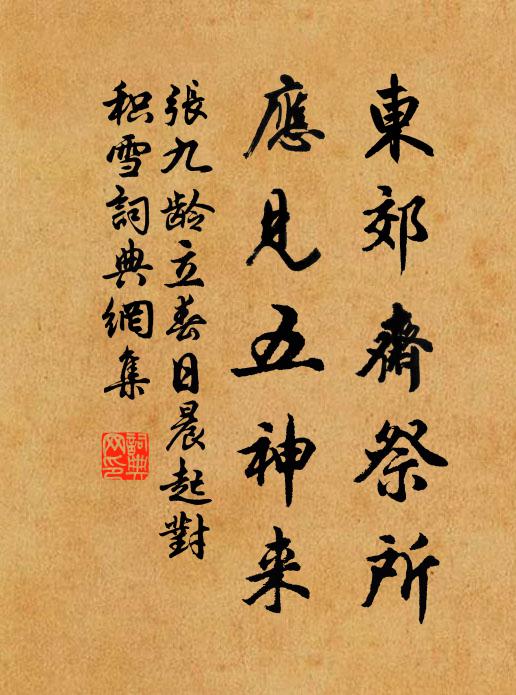 東郊齋祭所
應見五神来
張九龄立春日晨起對
积雪詞典網集
詞典网印